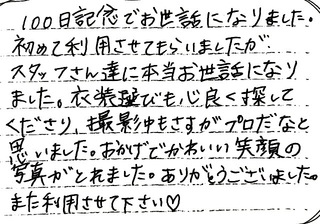 100日記念でお世話になりました。
初めて利用させてもらいましたが
スタッフさん達に本当お世話になり
ました。衣装選びも心良く探して
くださり、撮影中もさすがプロだなと
思いました。おかげでかわいい笑顔の
写真がとれました。ありがとうございました。
また利用させて下さい♡